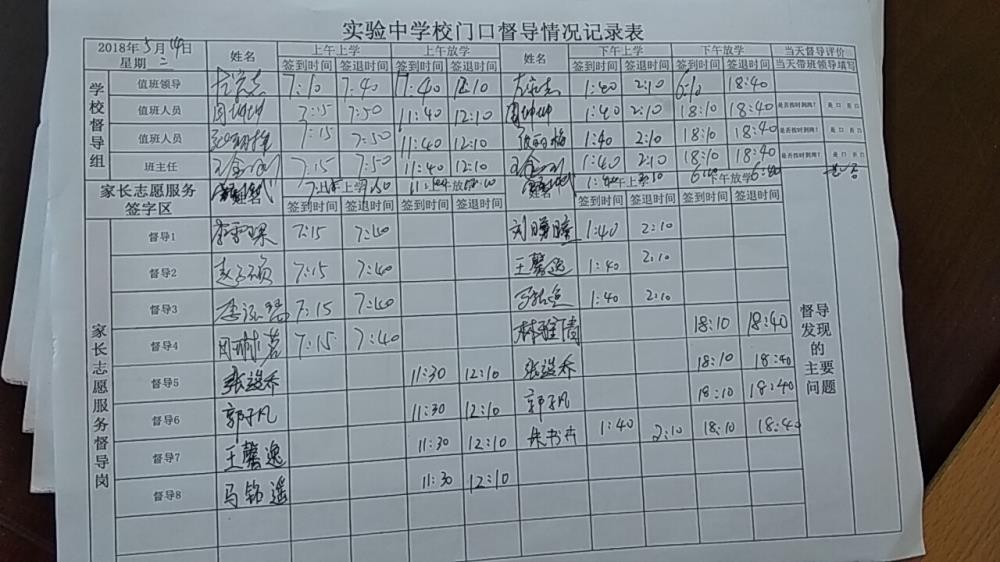 实验中学校门口督导情况记录表
2018年5月14日 星期二 姓名 上午上学 上午放学 姓名 下午上学 下午放学 当天督导评价
签到时间 签退时间 签到时间 签退时间 签到时间 签退时间 签到时间 签退时间 当天带班领导填写
学校督导组
值班领导 7:10 7:40 12:10 1:40 2:10 6:10 18:40
值班人员 周坤坤 7:15 7:50 11:40 12:10 周坤坤 1:40 2:10 18:10 18:40 是否按时到岗? 是 口 否 口
值班人员 7:15 7:50 11:40 12:10 张丽梅 1:40 2:10 18:10 18:40 是否按时到岗? 是 口 否 口
班主任 7:15 7:50 11:40 12:10 1:40 2:10 18:10 18:40 是否按时到岗? 是 口 否 口
家长志愿服务签字区 上午上学 上午放学 姓名 下午上学 下午放学
签到时间 签退时间 签到时间 签退时间 签到时间 签退时间 签到时间 签退时间
家长志愿服务督导岗
督导1 7:15 7:40 1:40 2:10
督导2 7:15 7:40 王馨逸 1:40 2:10
督导3 7:15 7:40 1:40 2:10
督导4 7:15 7:40 林雅清 18:10 18:40
督导5 11:30 12:10 18:10 18:40
督导6 郭子凡 11:30 12:10 郭子凡 18:10 18:40
督导7 王馨逸 11:30 12:10 朱书卉 1:40 2:10 18:10 18:40
督导8 马铭遥 11:30 12:10
督导发现的主要问题